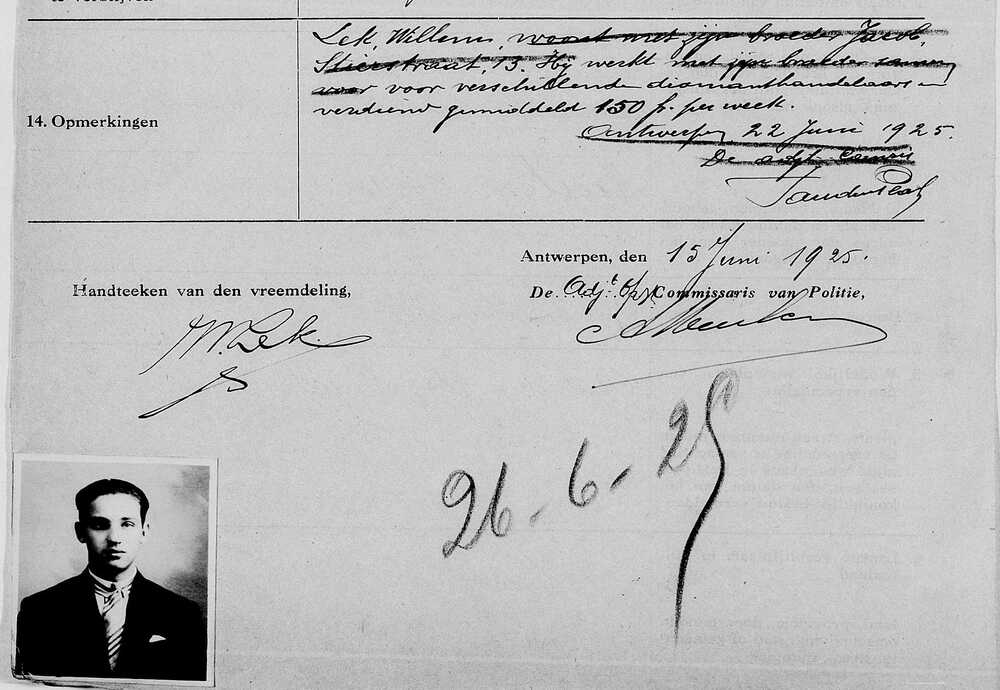 Lek, Willem, woont met zijn broeder Jacob,
Stierstraat, 13. Hij werkt met zijn broeder samen
voor voor verschillende diamanthandelaars en
verdiend gemiddeld 150 fr. per week.
14. Opmerkingen
Antwerpen 22 Juni 1925.
De adjt
Antwerpen, den 15 Juni 1925.
Handteeken van den vreemdeling,
De Adjt Commissaris van Politie,
W. Lek.
26-6-25